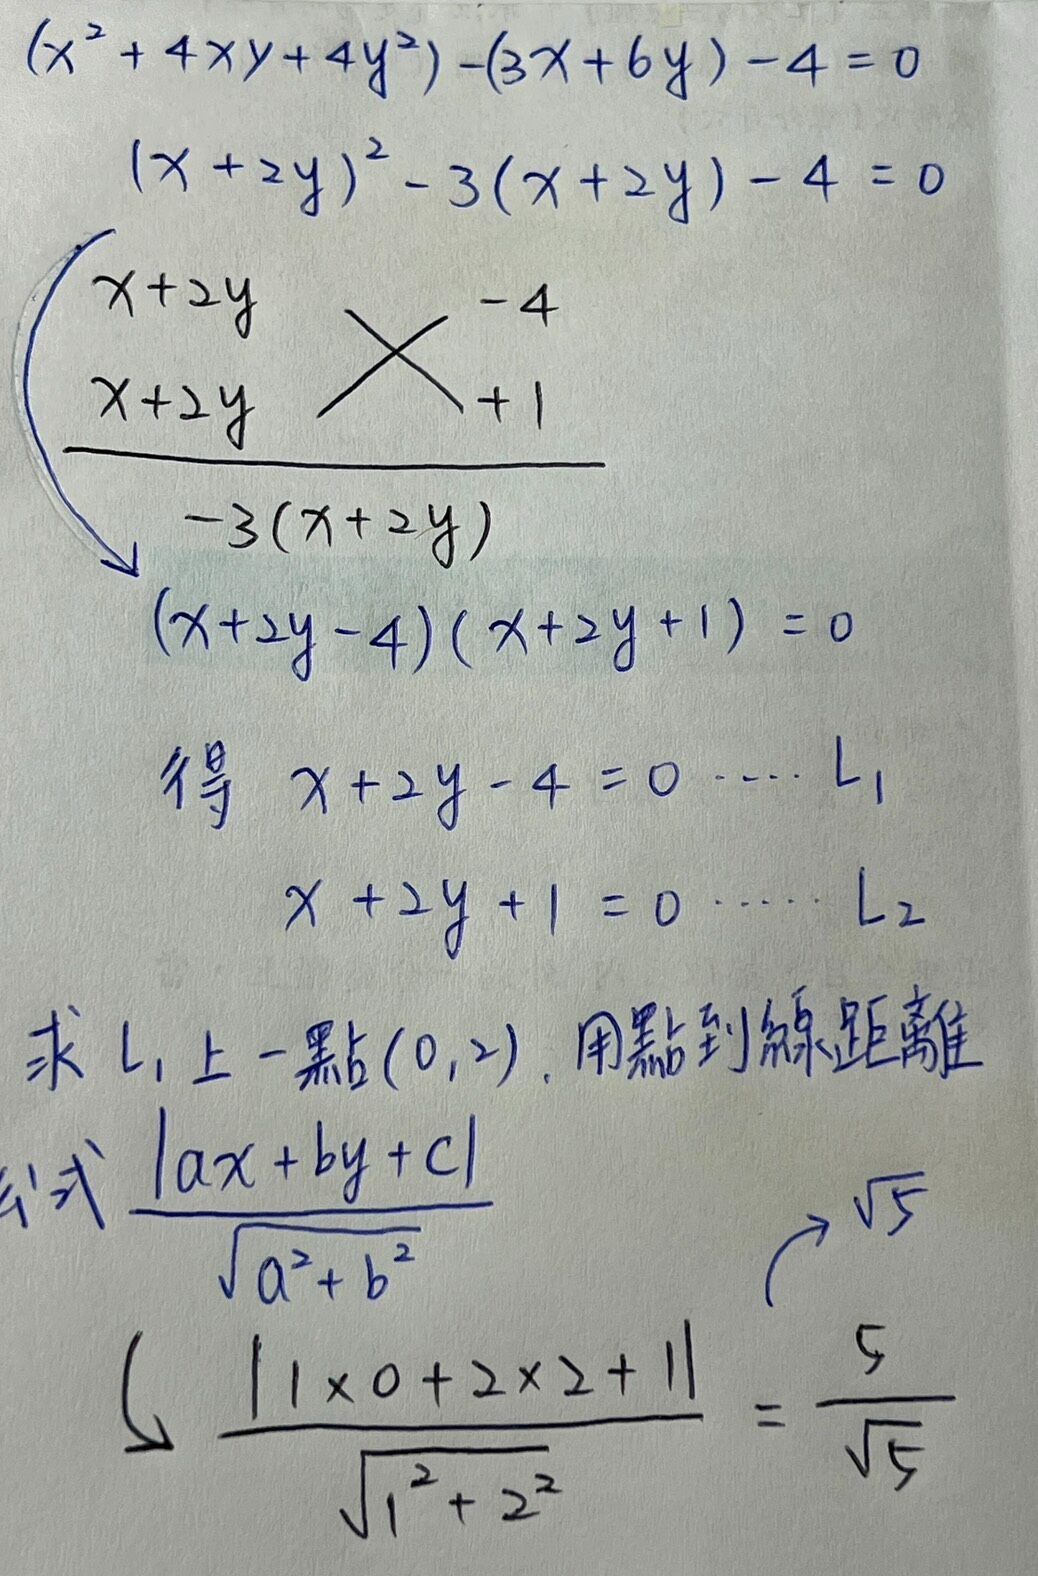 (x²+4xy+4y²)-(3x+6y)-4=0
(x+2y)²-3(x+2y)-4=0
x+2y -4
x+2y +1
-3(x+2y)
(x+2y-4)(x+2y+1)=0
得 x+2y-4=0 ····· L₁
x+2y+1=0 ····· L₂
求 L₁上一點(0,2),用點到線距離
公式 |ax+by+c|/√(a²+b²)
√5
|1×0+2×2+1|/√(1²+2²) = 5/√5